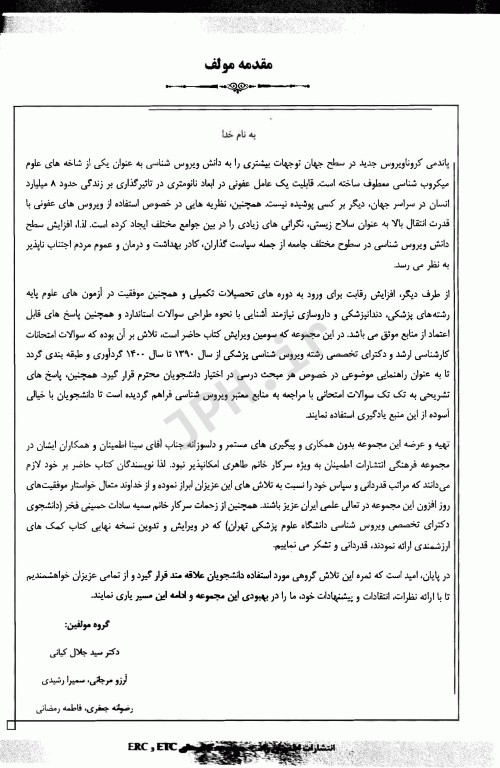 مقدمه مولف
به نام خدا
پاندمی کروناویروس جدید در سطح جهان توجهات بیشتری را به دانش ویروس شناسی به عنوان یکی از شاخه های علوم
میکروب شناسی معطوف ساخته است. قابلیت یک عامل عفونی در ابعاد نانومتری در تاثیرگذاری بر زندگی حدود ۸ میلیارد
انسان در سراسر جهان، دیگر بر کسی پوشیده نیست. همچنین، نظریه هایی در خصوص استفاده از ویروس های عفونی با
قدرت انتقال بالا به عنوان سلاح زیستی، نگرانی های زیادی را در بین جوامع مختلف ایجاد کرده است. لذا، افزایش سطح
دانش ویروس شناسی در سطوح مختلف جامعه از جمله سیاست گذاران، کادر بهداشت و درمان و عموم مردم اجتناب ناپذیر
به نظر می رسد.
از طرف دیگر، افزایش رقابت برای ورود به دوره های تحصیلات تکمیلی و همچنین موفقیت در آزمون های علوم پایه
رشته‌های پزشکی، دندانپزشکی و داروسازی نیازمند آشنایی با نحوه طراحی سوالات استاندارد و همچنین پاسخ های قابل
اعتماد از منابع موثق می باشد. در این مجموعه که سومین ویرایش کتاب حاضر است، تلاش بر آن بوده که سوالات امتحانات
کارشناسی ارشد و دکترای تخصصی رشته ویروس شناسی پزشکی از سال ۱۳۹۰ تا سال ۱۴۰۰ گردآوری و طبقه بندی گردد
تا به عنوان راهنمایی موضوعی در خصوص هر مبحث درسی در اختیار دانشجویان محترم قرار گیرد. همچنین، پاسخ های
تشریحی به تک تک سوالات امتحانی با مراجعه به منابع معتبر ویروس شناسی فراهم گردیده است تا دانشجویان با خیالی
آسوده از این منبع یادگیری استفاده نمایند.
تهیه و عرضه این مجموعه بدون همکاری و پیگیری های مستمر و دلسوزانه جناب آقای سینا اطمینان و همکاران ایشان در
مجموعه فرهنگی انتشارات اطمینان به ویژه سرکار خانم طاهری امکانپذیر نبود. لذا نویسندگان کتاب حاضر بر خود لازم
می‌دانند که مراتب قدردانی و سپاس خود را نسبت به تلاش های این عزیزان ابراز نموده و از خداوند متعال خواستار موفقیت‌های
روز افزون این مجموعه در تعالی علمی ایران عزیز باشند. همچنین از زحمات سرکار خانم سمیه سادات حسینی فخر (دانشجوی
دکترای تخصصی ویروس شناسی دانشگاه علوم پزشکی تهران) که در ویرایش و تدوین نسخه نهایی کتاب کمک های
ارزشمندی ارائه نمودند، قدردانی و تشکر می نماییم.
در پایان، امید است که ثمره این تلاش گروهی مورد استفاده دانشجویان علاقه مند قرار گیرد و از تمامی عزیزان خواهشمندیم
تا با ارائه نظرات، انتقادات و پیشنهادات خود، ما را در بهبودی این مجموعه و ادامه این مسیر یاری نمایند.
گروه مولفین:
دکتر سید جلال کیانی
آرزو مرجانی، سمیرا رشیدی
رضوانه جعفری، فاطمه رمضانی
انتشارات ERC و ETC
JPH.ir